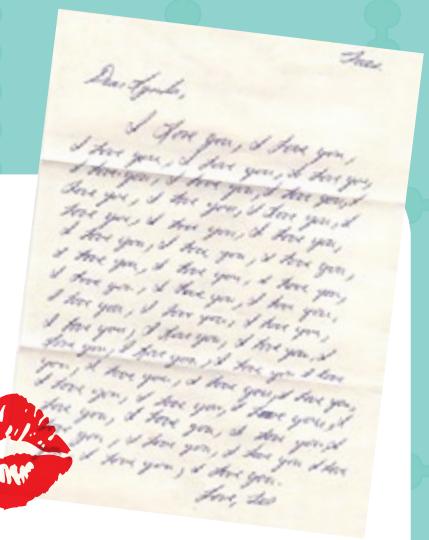 Tues.
Dear Lynda,
I love you, I love you,
I love you, I love you, I love you,
I love you, I love you, I love you, I
love you, I love you, I love you, I
love you, I love you, I love you,
I love you, I love you, I love you,
I love you, I love you, I love you,
I love you, I love you, I love you,
I love you, I love you, I love you,
I love you, I love you, I love you, I
love you, I love you, I love you I love
you, I love you, I love you, I love you,
I love you, I love you, I love you, I
love you, I love you, I love you, I
love you, I love you, I love you I love
I love you, I love you.
Love,